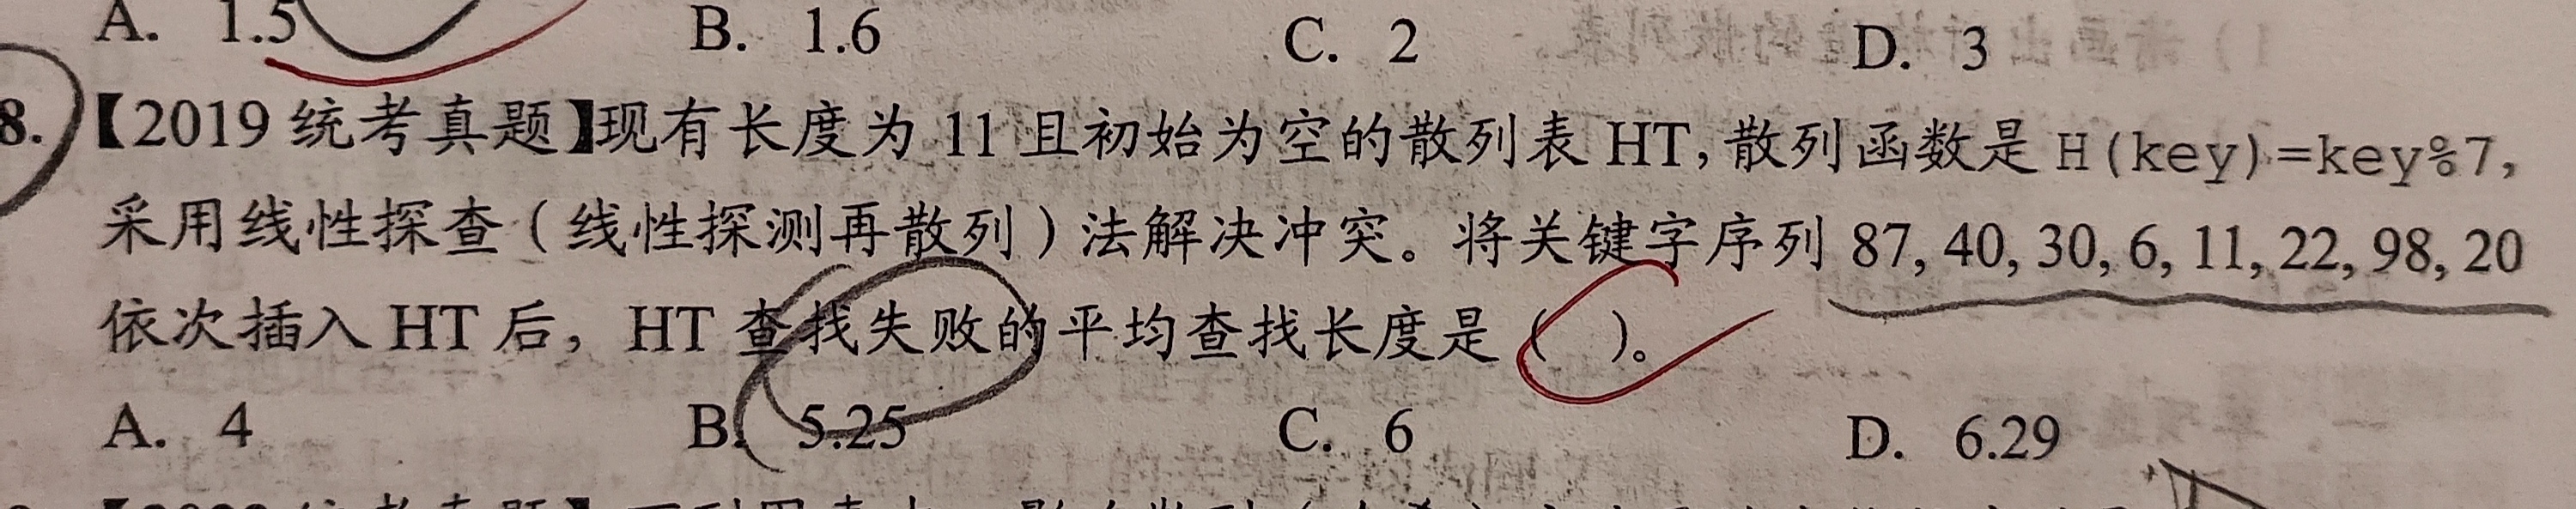 A. 1.5 B. 1.6 C. 2 D. 3
8. 【2019 统考真题】现有长度为 11 且初始为空的散列表 HT，散列函数是 H(key)=key%7，
采用线性探查（线性探测再散列）法解决冲突。将关键字序列 87, 40, 30, 6, 11, 22, 98, 20
依次插入 HT 后，HT 查找失败的平均查找长度是（ ）。
A. 4 B. 5.25 C. 6 D. 6.29